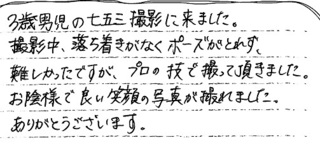 3歳男児の七五三撮影に来ました。
撮影中、落ち着きがなくポーズがとれず、
難しかったですが、プロの技で撮って頂きました。
お陰様で良い笑顔の写真が撮れました。
ありがとうございます。